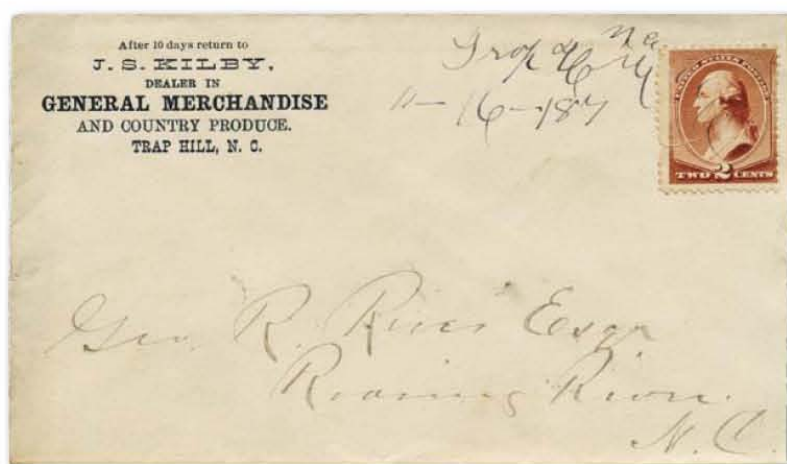 After 10 days return to
J. S. KILBY,
DEALER IN
GENERAL MERCHANDISE
AND COUNTRY PRODUCE.
TRAP HILL, N. C.
Trap Hill N C
11-16-187
UNITED STATES POSTAGE
TWO 2 CENTS
Geo. R. Rives Esqr
Roaring River.
N. C.